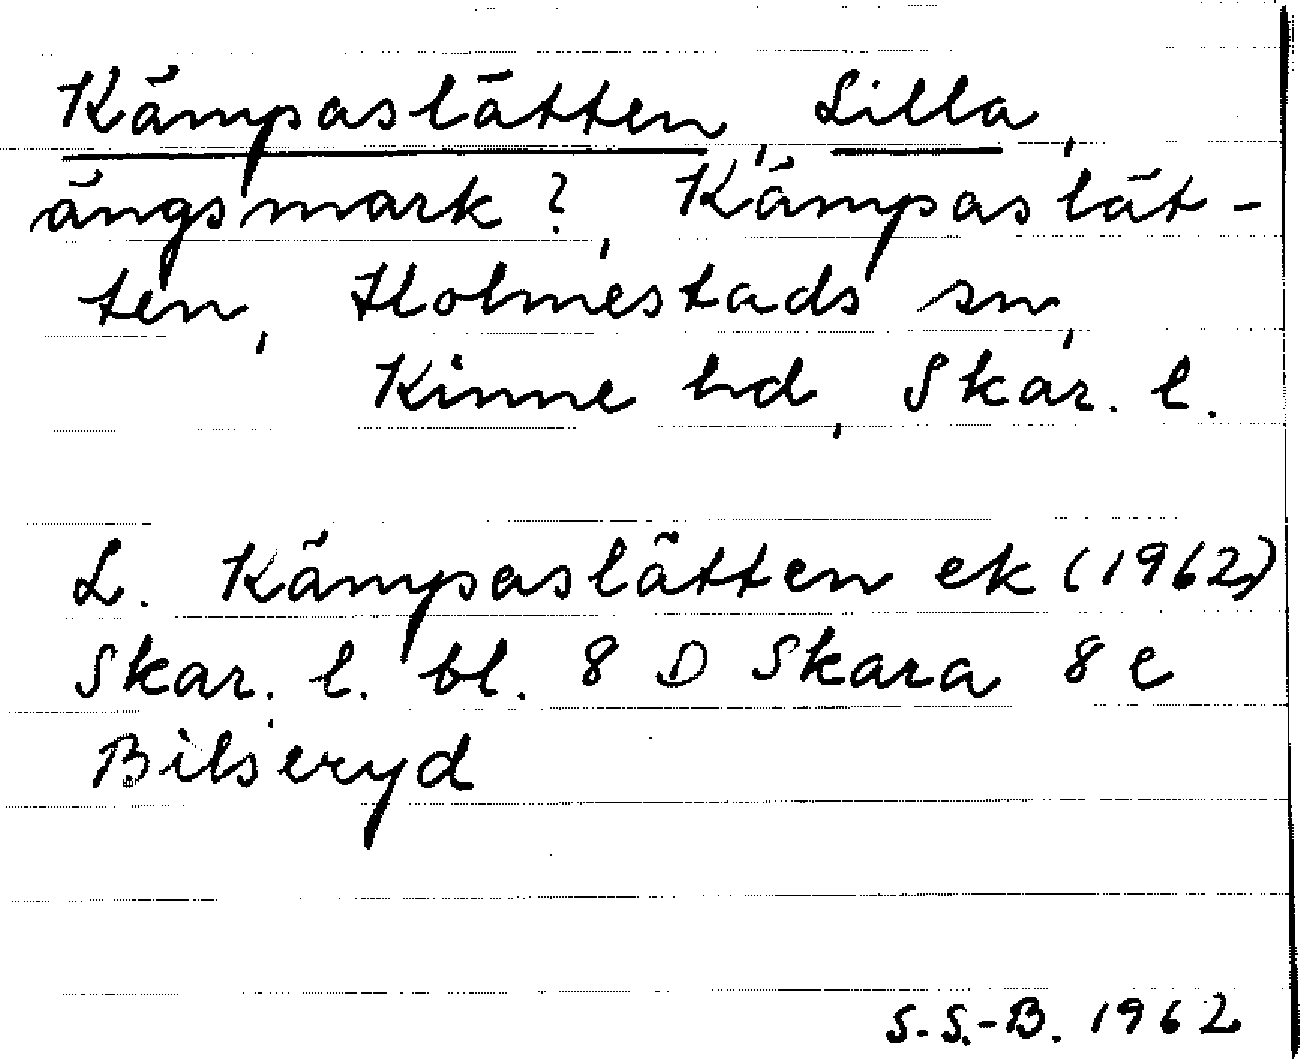 Kämpaslätten, Lilla,
ängsmark?, Kämpaslät-
ten, Holmestads sn,
Kinne hd, Skar. l.
L. Kämpaslätten ek (1962)
Skar. l. bl. 8 D Skara 8 e
Bilseryd
S.S.-B. 1962